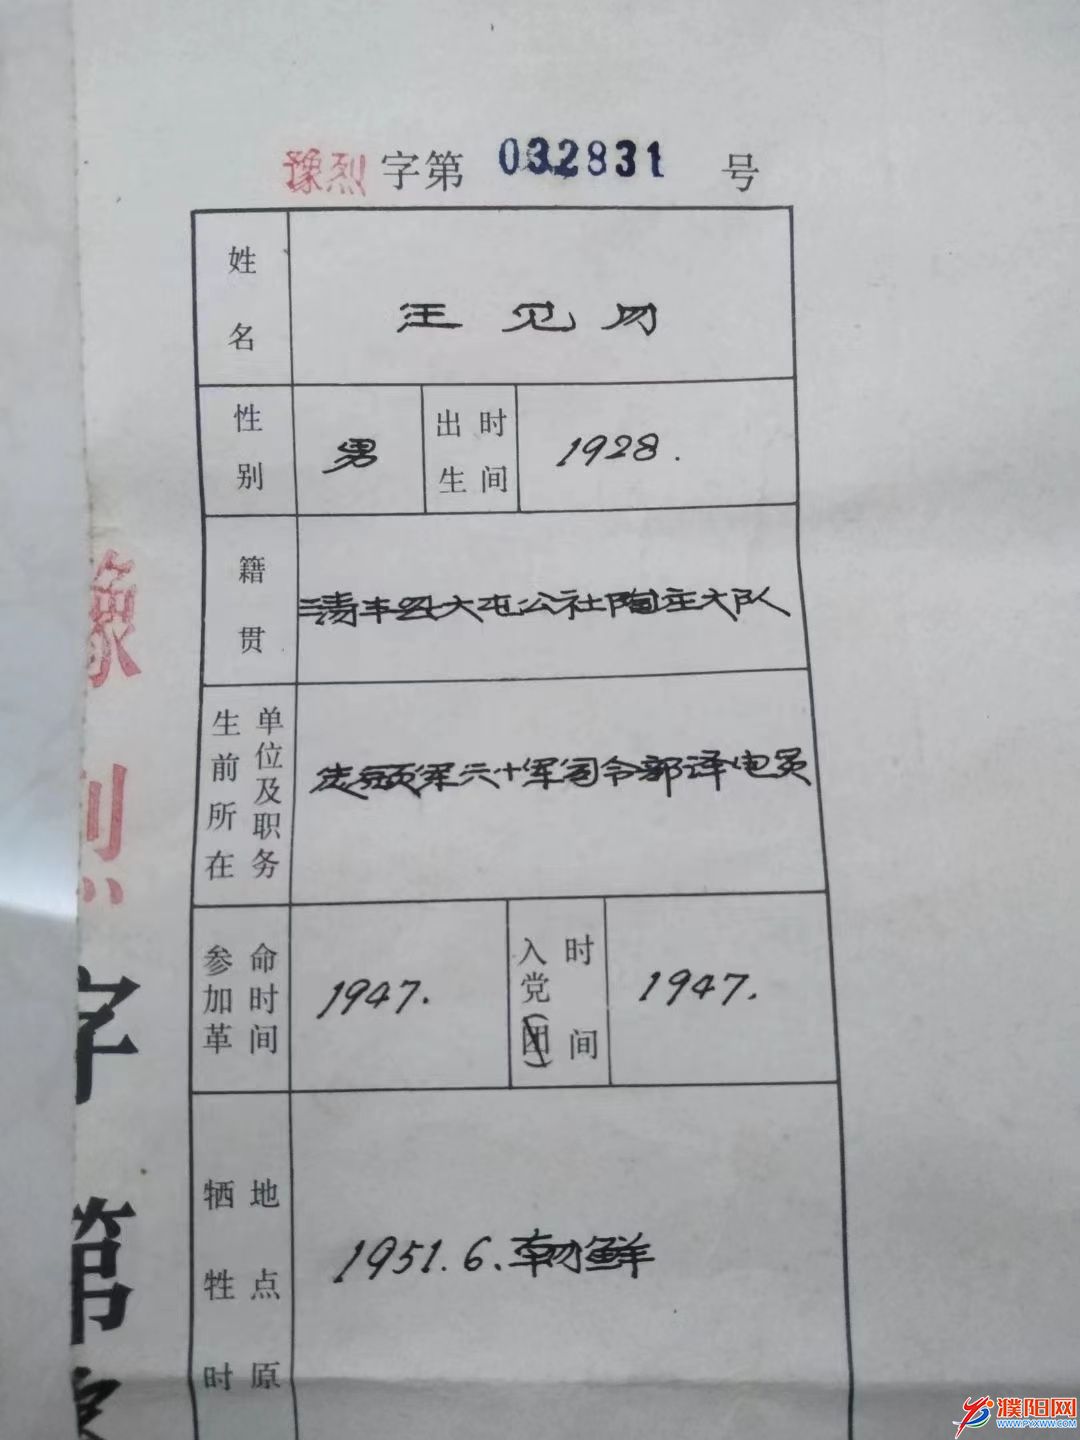 豫烈字第 032831 号
姓名 汪见明
性别 男 出生时间 1928.
籍贯 清丰县大屯公社陶庄大队
生前所在单位及职务 志愿军六十军司令部译电员
参加革命时间 1947. 入党团时间 1947.
牺牲时 地点原 1951.6.朝鲜
豫烈字第
濮阳网
WWW.PYXWW.COM